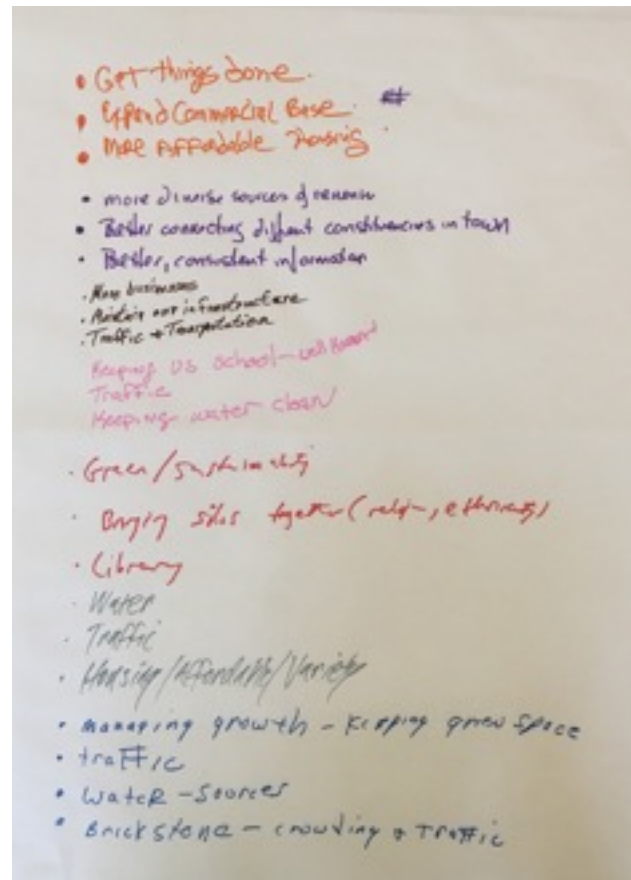 • Get things done.
• Expand Commercial Base.
• More Affordable Housing
• more diverse sources of revenue
• Better connecting different constituencies in town
• Better, consistent information
• More businesses
• Maintain our infrastructure
• Traffic + Transportation
Keeping US School - well
Traffic
Keeping water clean
• Green/Sustainability
• Bringing silos together (religion, ethnicity)
• Library
• Water
• Traffic
• Housing/Affordable/Variety
• managing growth - keeping green space
• traffic
• Water - sources
• Brickstone - crowding + Traffic